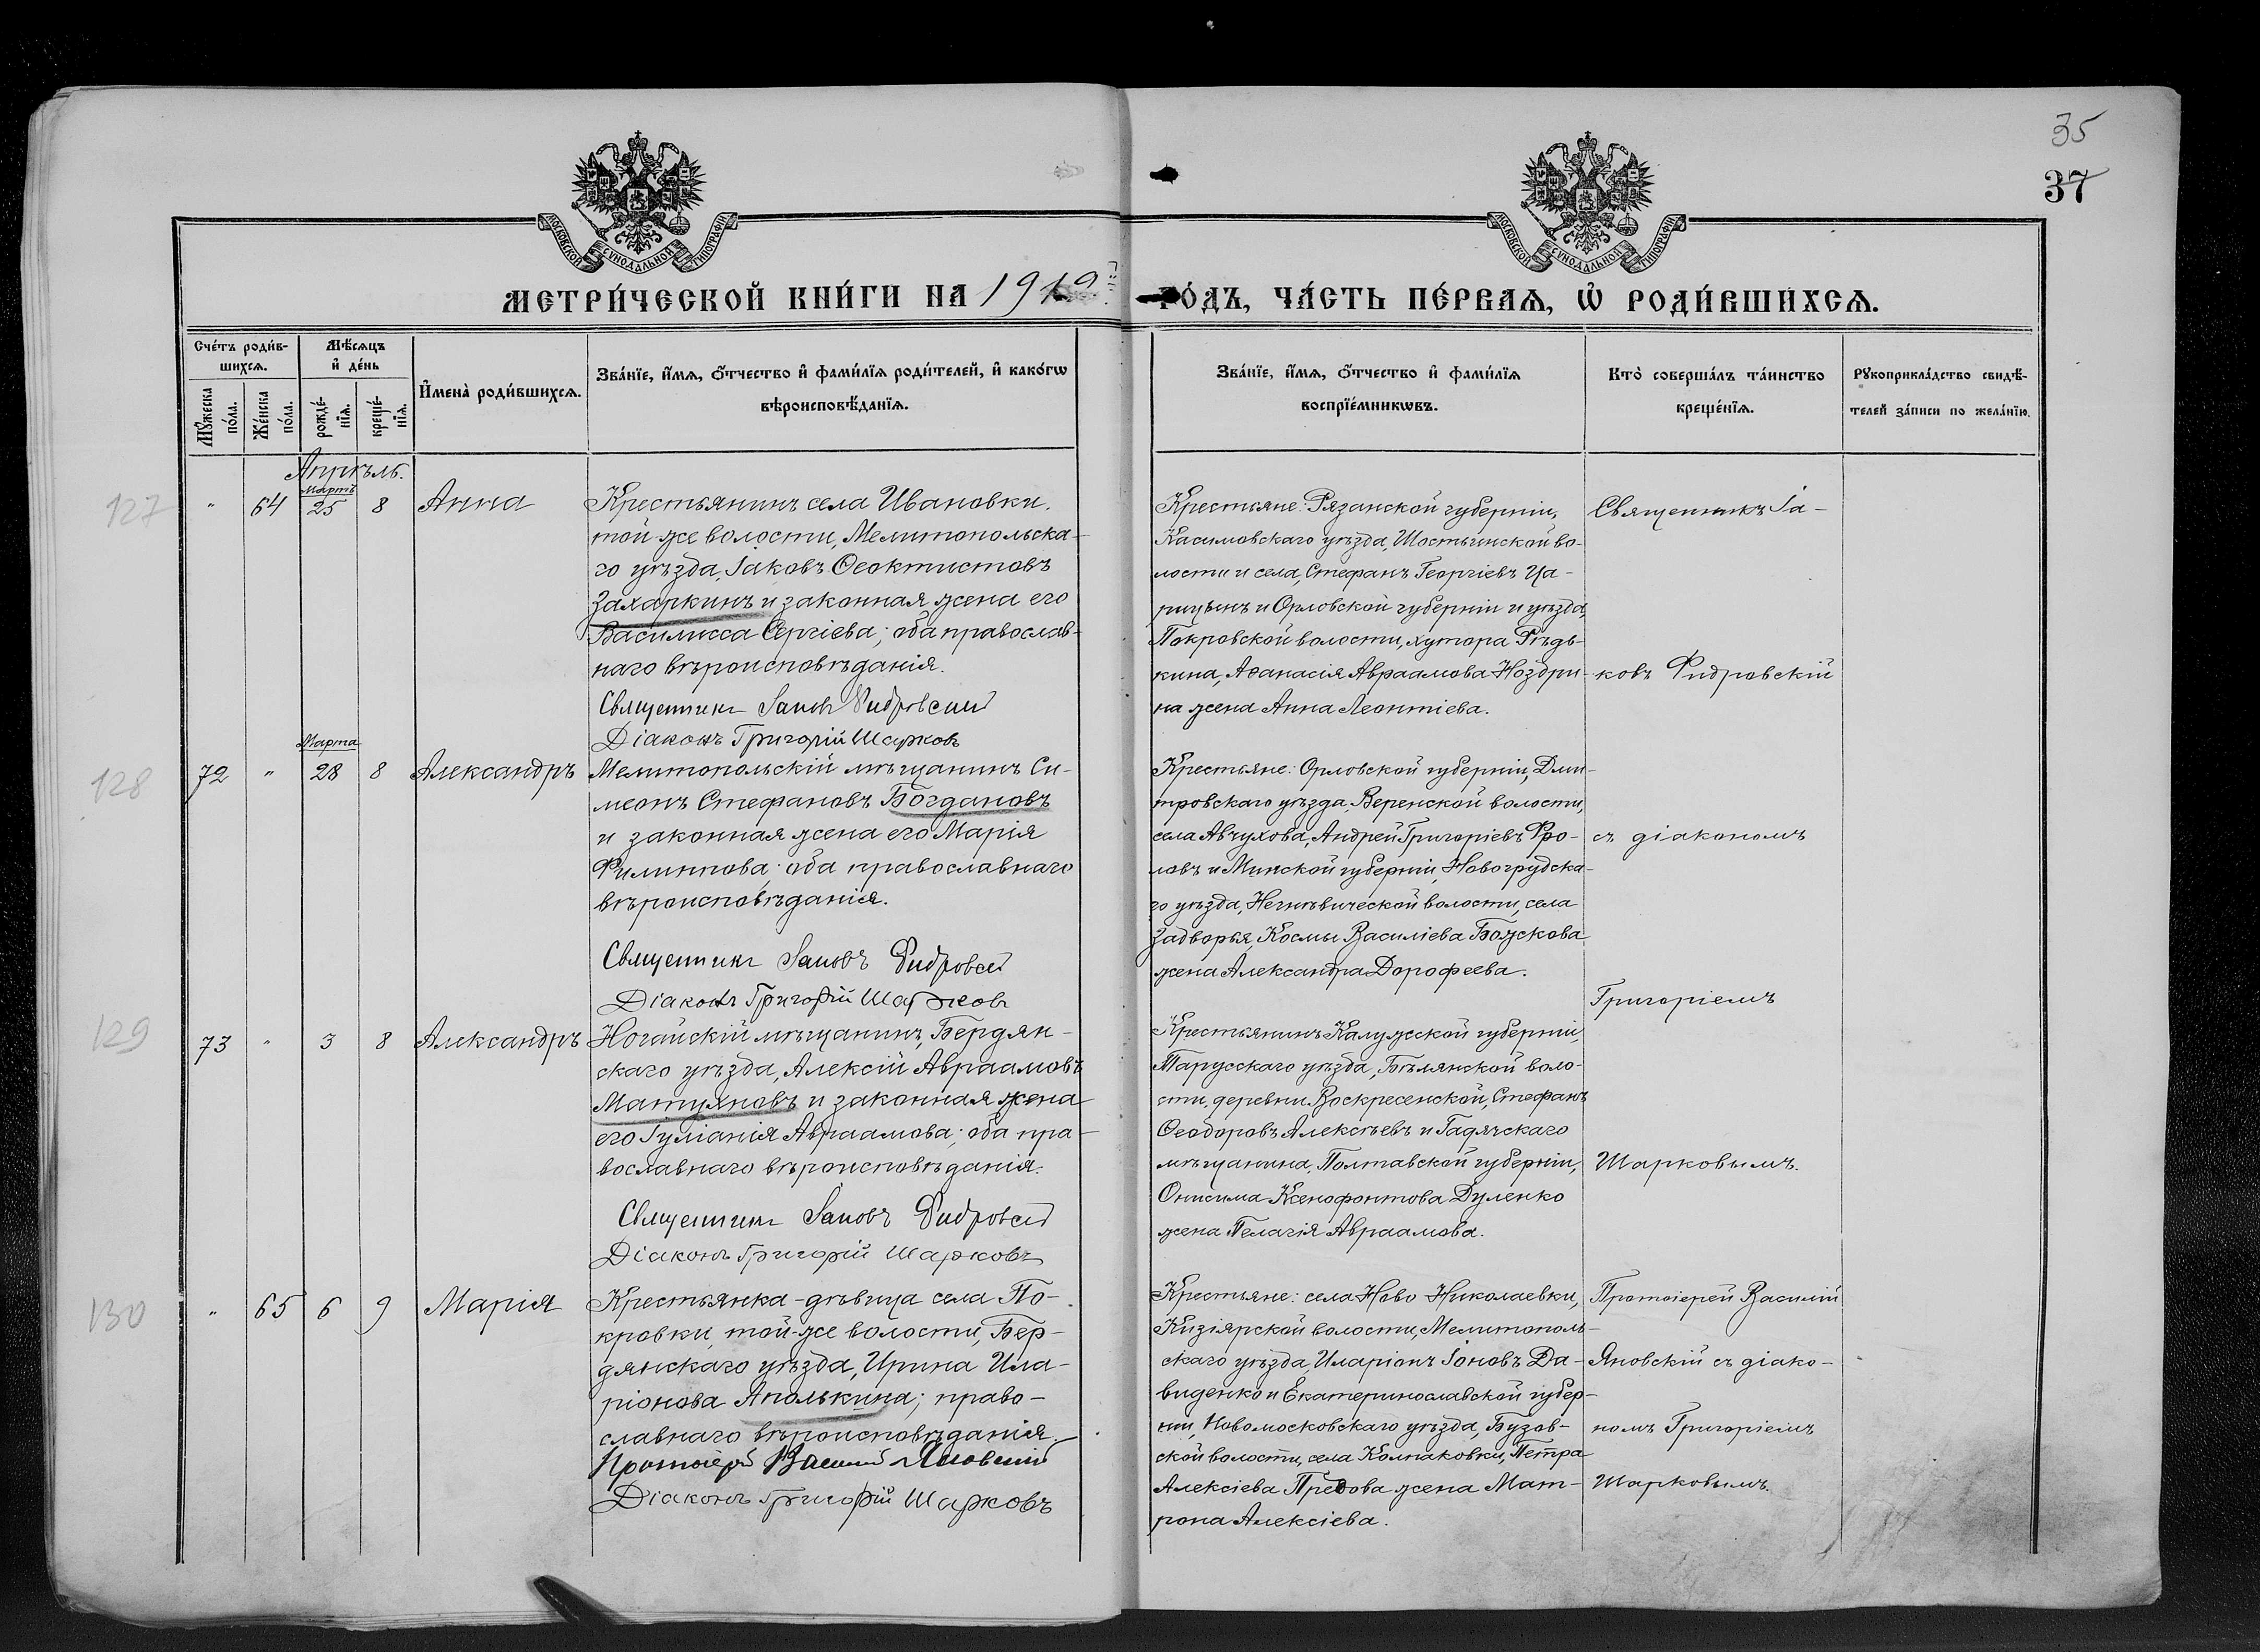 35
37
МОСКОВСКОЙ СѴНОДАЛЬНОЙ ТИПОГРАФІИ
МОСКОВСКОЙ СѴНОДАЛЬНОЙ ТИПОГРАФІИ
МЕТРИ́ЧЕСКОЙ КНИ́ГИ НА 1919
ГО́ДЪ, ЧА́СТЬ ПЕ́РВАѦ, Ѡ҆ РОДИ́ВШИХСѦ.
Сче́тъ роди́в-
шихсѧ.
Мѣ́сѧцъ
и҆ де́нь
Мꙋ́жеска
по́ла.
Же́нска
по́ла.
рожде́-
нїѧ.
креще́-
нїѧ.
И҆мена̀ роди́вшихсѧ.
Зва́нїе, и҆́мѧ, ѻ҆́тчество и҆ фами́лїѧ роди́телей, и҆ како́гѡ
вѣроисповѣ́данїѧ.
Зва́нїе, и҆́мѧ, ѻ҆́тчество и҆ фами́лїѧ
воспрїе́мникѡвъ.
Кто̀ соверша́лъ та́инство
креще́нїѧ.
Рꙋкоприкла́дство свидѣ́-
телей за́писи по жела́нїю.
Апрѣль.
127
"
64
Мартъ
25
8
Анна
Крестьянинъ села Ивановки,
той-же волости, Мелитопольска-
го уѣзда, Іаковъ Ѳеоктистовъ
Захаркинъ и законная жена его
Василисса Сергіева; оба православ-
наго вѣроисповѣданія.
Священникъ Іаковъ Фидровскій
Діаконъ Григорій Шарковъ
Крестьяне: Рязанской губерніи,
Касимовскаго уѣзда, Шостьинской во-
лости и села, Стефанъ Георгіевъ Ца-
рицынъ и Орловской губерніи и уѣзда,
Покровской волости, хутора Рѣдь-
кина, Аѳанасія Авраамова Ноздри-
на жена Анна Леонтіева.
Священникъ Іа-
ковъ Фидровскій
128
72
"
Марта
28
8
Александръ
Мелитопольскій мѣщанинъ Си-
меонъ Стефановъ Богдановъ
и законная жена его Марія
Филиппова; оба православнаго
вѣроисповѣданія.
Священникъ Іаковъ Фидровскій
Діаконъ Григорій Шарковъ
Крестьяне: Орловской губерніи, Дми-
тровскаго уѣзда, Веренской волости,
села Авчухова, Андрей Григоріевъ Фро-
ловъ и Минской губерніи, Новогрудска-
го уѣзда, Негнѣвической волости, села
Задворья, Космы Василіева Божкова
жена Александра Дорофеева.
съ діакономъ
Григоріемъ
129
73
"
3
8
Александръ
Ногайскій мѣщанинъ, Бердян-
скаго уѣзда, Алексій Авраамовъ
Матуяновъ и законная жена
его Іуліанія Авраамова; оба пра-
вославнаго вѣроисповѣданія.
Священникъ Іаковъ Фидровскій
Діаконъ Григорій Шарковъ
Крестьянинъ Калужской губерніи,
Тарусскаго уѣзда, Бѣлянской воло-
сти, деревни Воскресенской, Стефанъ
Ѳеодоровъ Алексѣевъ и Гадячскаго
мѣщанина, Полтавской губерніи,
Онисима Ксенофонтова Дуленко
жена Пелагія Авраамова.
Шарковымъ.
130
"
65
6
9
Марія
Крестьянка-дѣвица села По-
кровки, той-же волости, Бер-
дянскаго уѣзда, Ирина Ила-
ріонова Аполькина; право-
славнаго вѣроисповѣданія.
Протоіерей Василій Яновскій
Діаконъ Григорій Шарковъ
Крестьяне: села Ново Николаевки,
Кизіярской волости, Мелитополь-
скаго уѣзда, Иларіонъ Іоновъ Да-
виденко и Екатеринославской губер-
ніи, Новомосковскаго уѣзда, Бузов-
ской волости, села Колпаковки, Петра
Алексіева Предова жена Мат-
рона Алексіева.
Протоіерей Василій
Яновскій съ діако-
номъ Григоріемъ
Шарковымъ.